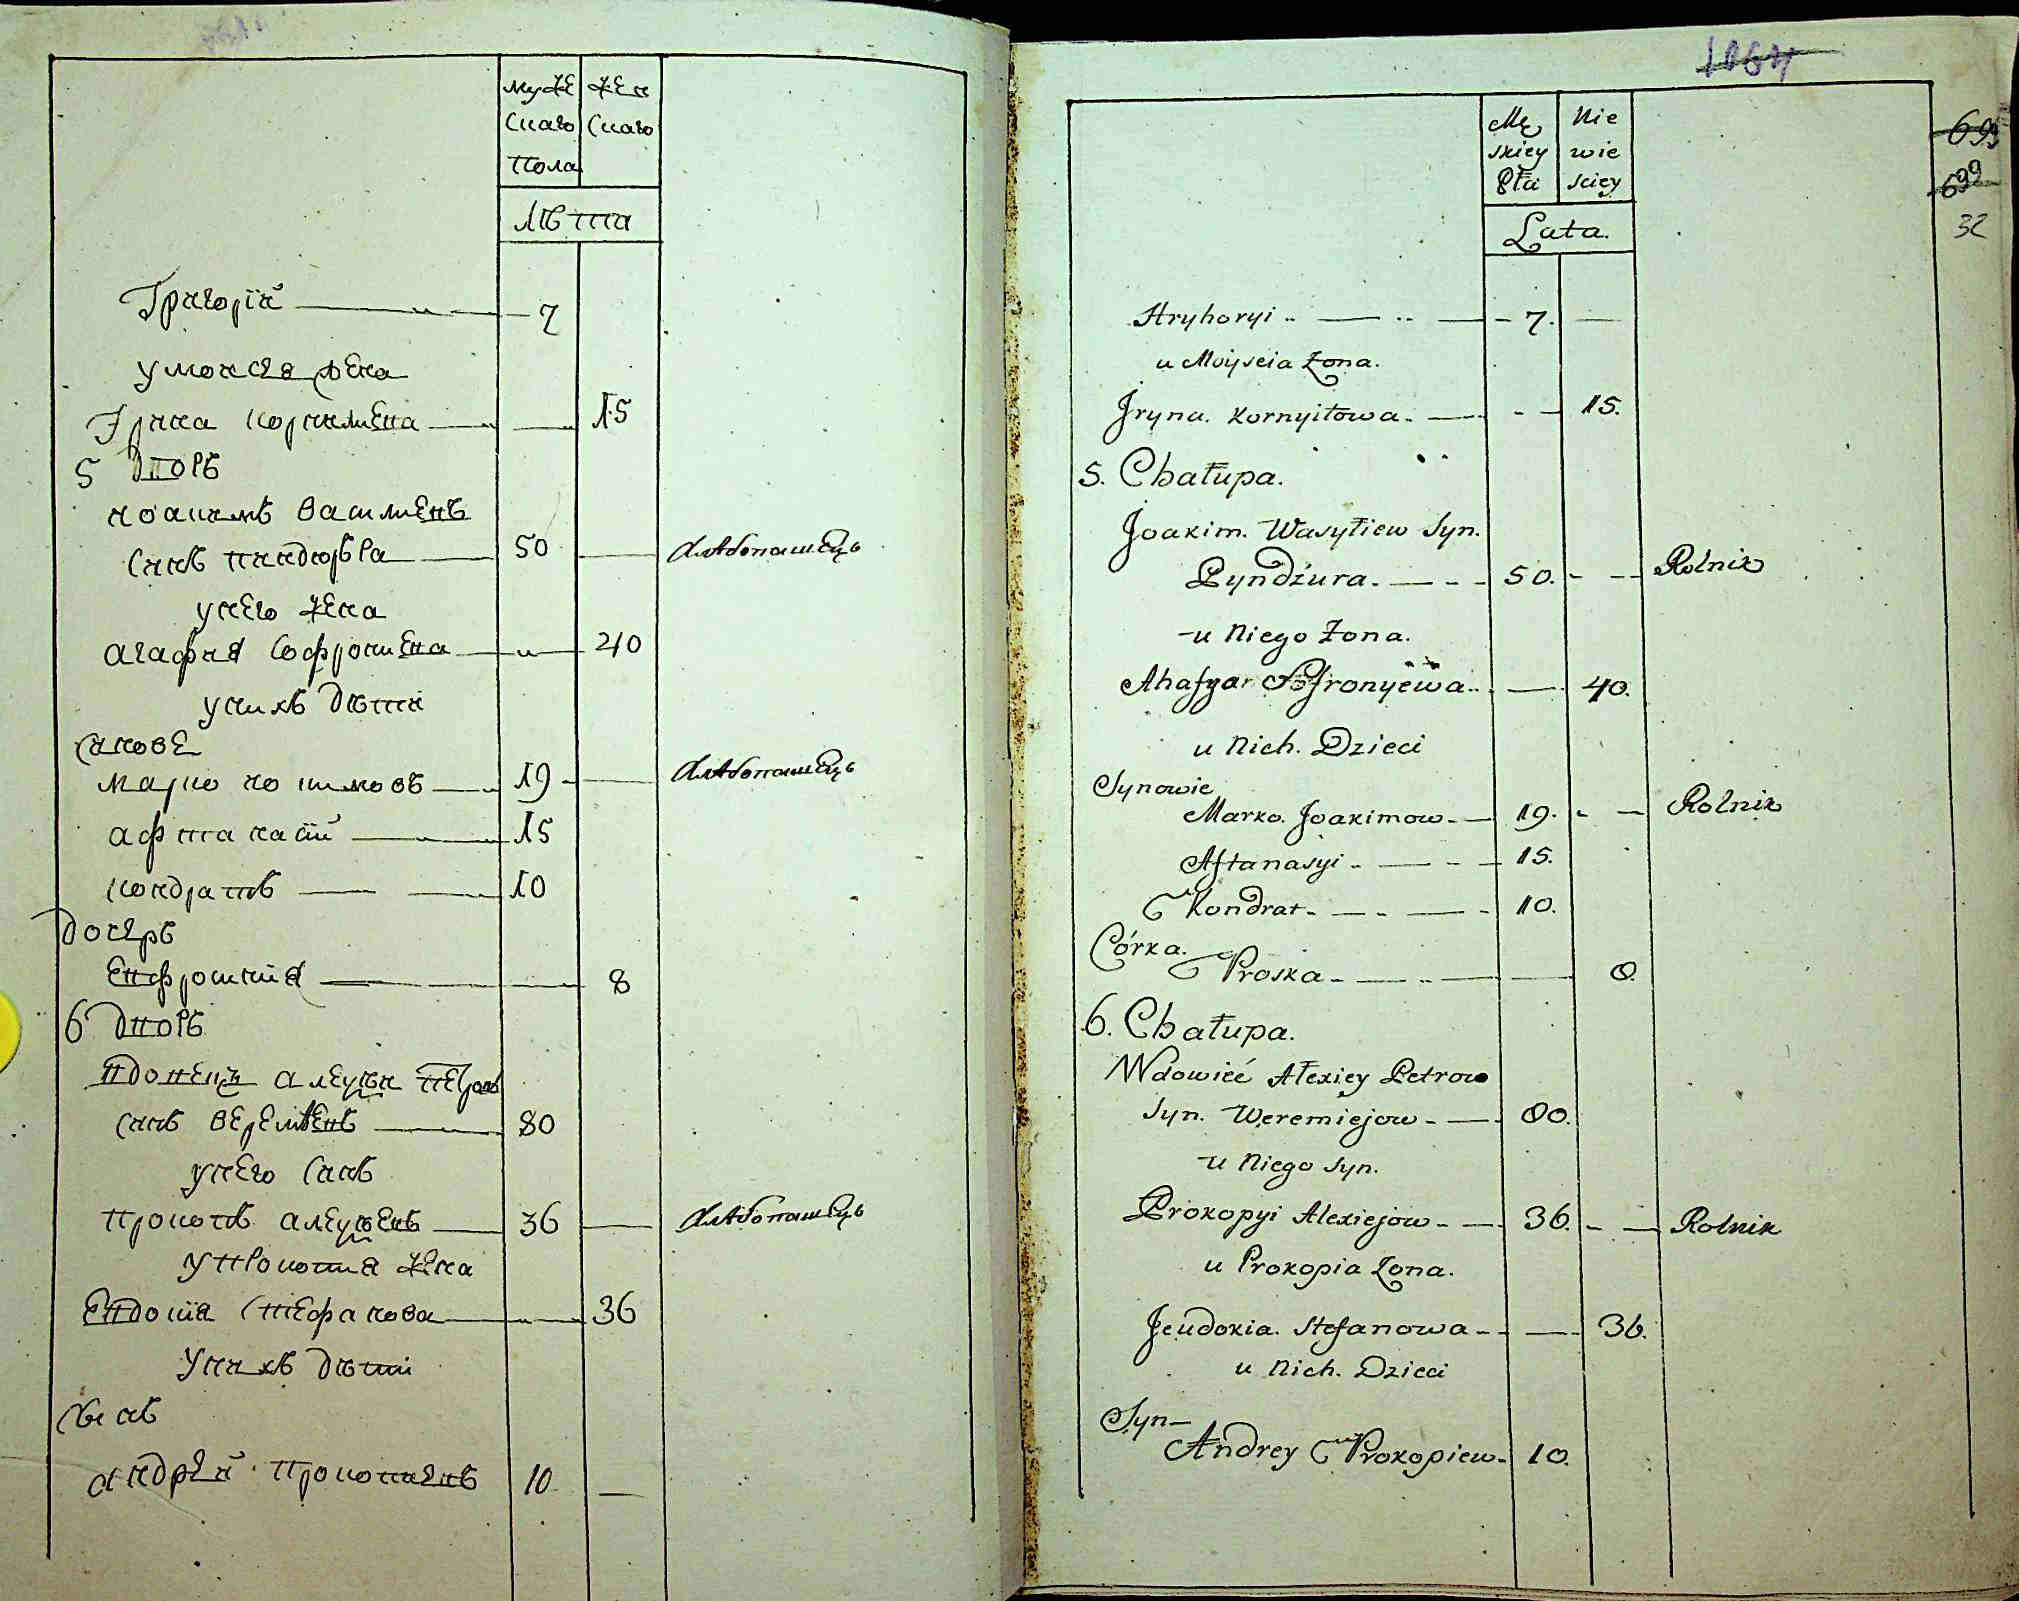 муже
скаго
пола
жен
скаго
лѣта
Григорій 7
у моисея жена
Ірина корнилиева 15
5 Дворъ
иоакимъ василиевъ
синъ пиндюра 50 хлѣбопашецъ
у него жена
агафия софрониева 40
у нихъ дѣти
синове
марко иокимовъ 19 хлѣбопашецъ
афтанасій 15
кондратъ 10
дочеръ
евфросинія 8
6 Дворъ
вдовецъ алеѯѣй петровъ
синъ веремѣевъ 80
у него синъ
прокопъ алеѯѣевъ 36 хлѣбопашецъ
у прокопия жена
Евдокія стефанова 36
у нихъ дѣти
сынъ
андрей прокопиевъ 10
1064
699
699
32
Mę
skiey
Płci
Nie
wie
sciey
Lata.
Hryhoryi 7.
u Moyseia Żona.
Jryna. Kornyiłowa. 15.
5. Chałupa.
Joakim. Wasyłiew Syn.
Pyndźura. 50. Rolnik
u Niego Żona.
Ahafya Sofronyewa. 40.
u Nich. Dzieci
Synowie
Marko. Joakimow. 19. Rolnik
Aftanasyi 15.
Kondrat. 10.
Córka.
Proska 8.
6. Chałupa.
Wdowieć Ałexiey Petrow
Syn. Weremiejow 80.
u Niego Syn.
Prokopyi Alexiejow 36. Rolnik
u Prokopia Żona.
Jeudokia. Stefanowa 36.
u Nich. Dzieci
Syn
Andrey Prokopiew. 10.